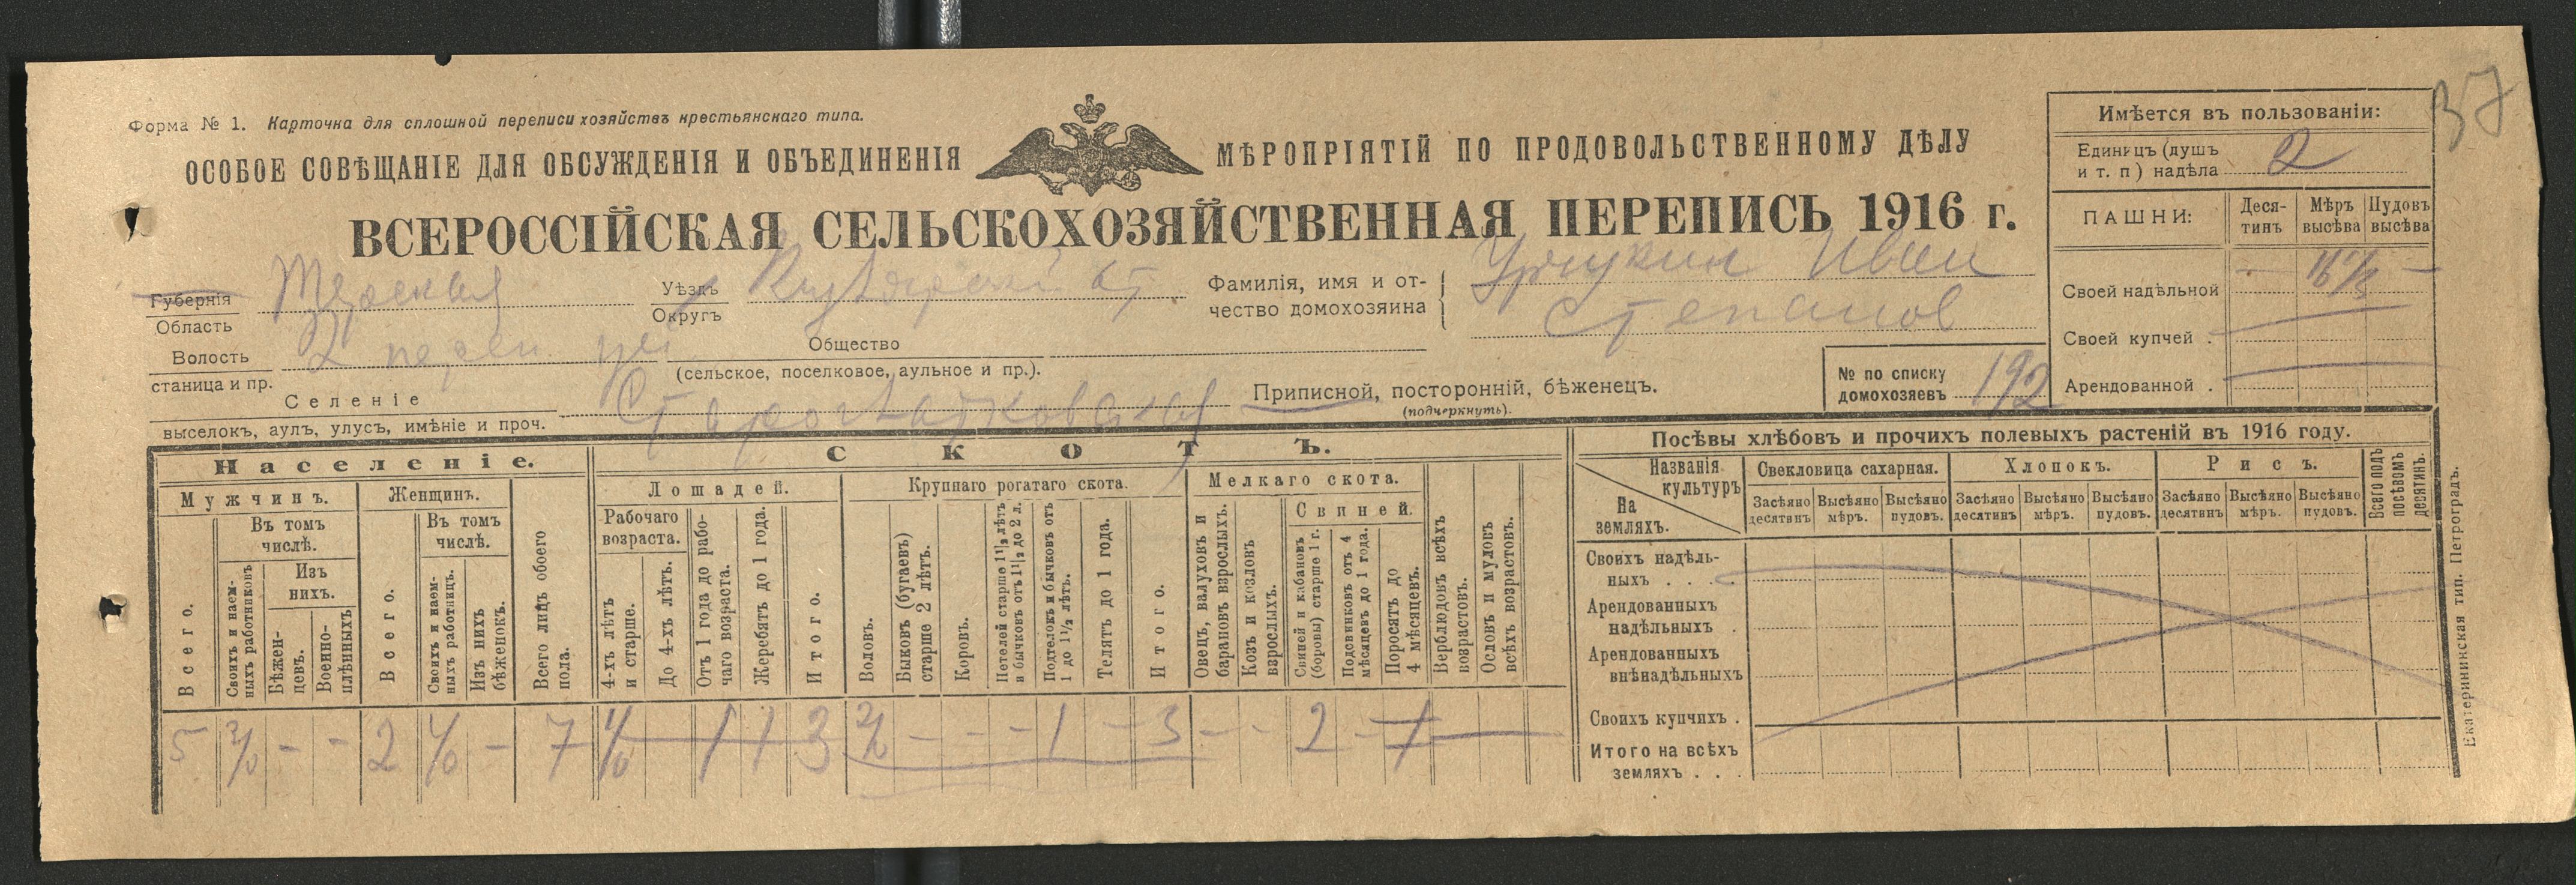 37
Форма № 1. Карточка для сплошной переписи хозяйствъ крестьянскаго типа.
ОСОБОЕ СОВѢЩАНІЕ ДЛЯ ОБСУЖДЕНІЯ И ОБЪЕДИНЕНІЯ МѢРОПРІЯТІЙ ПО ПРОДОВОЛЬСТВЕННОМУ ДѢЛУ
ВСЕРОССІЙСКАЯ СЕЛЬСКОХОЗЯЙСТВЕННАЯ ПЕРЕПИСЬ 1916 г.
Губернія
Область
Терская
Уѣздъ
Округъ
Фамилія, имя и от-
чество домохозяина
Иван
Степанов
Волость
станица и пр.
2
Общество
(сельское, поселковое, аульное и пр.).
Селеніе
выселокъ, аулъ, улусъ, имѣніе и проч.
Приписной, посторонній, бѣженецъ.
(подчеркнуть).
№ по списку
домохозяевъ 192
Имѣется въ пользованіи:
Единицъ (душъ
и т. п) надѣла 2
ПАШНИ:
Деся-
тинъ
Мѣръ
высѣва
Пудовъ
высѣва
Своей надѣльной
Своей купчей .
Арендованной .
Населеніе.
Мужчинъ.
Всего.
Въ томъ
числѣ.
Своихъ и наем-
ныхъ работниковъ
Изъ
нихъ.
Бѣжен-
цевъ.
Военно-
плѣнныхъ
Женщинъ.
Всего.
Въ томъ
числѣ.
Своихъ и наем-
ныхъ работницъ.
Изъ нихъ
бѣженокъ.
Всего лицъ обоего
пола.
СКОТЪ.
Лошадей.
Рабочаго
возраста.
4-хъ лѣтъ
и старше.
До 4-хъ лѣтъ.
Отъ 1 года до рабо-
чаго возраста.
Жеребятъ до 1 года.
Итого.
Крупнаго рогатаго скота.
Воловъ.
Быковъ (бугаевъ)
старше 2 лѣтъ.
Коровъ.
Нетелей старше 1½ лѣтъ
и бычковъ отъ 1½ до 2 л.
Подтелокъ и бычковъ отъ
1 до 1½ лѣтъ.
Телятъ до 1 года.
Итого.
Мелкаго скота.
Овецъ, валуховъ и
барановъ взрослыхъ.
Козъ и козловъ
взрослыхъ.
Свиней.
Свиней и кабановъ
(боровы) старше 1 г.
Подсвинковъ отъ 4
мѣсяцевъ до 1 года.
Поросятъ до
4 мѣсяцевъ.
Верблюдовъ всѣхъ
возрастовъ.
Ословъ и муловъ
всѣхъ возрастовъ.
5 2/0 - - 2 1/0 - 7 1/0 1 1 3 2/2 - - - 1 - 3 - - 2 - 1
Посѣвы хлѣбовъ и прочихъ полевыхъ растеній въ 1916 году.
Названія
культуръ
На
земляхъ.
Свекловица сахарная.
Засѣяно
десятинъ
Высѣяно
мѣръ.
Высѣяно
пудовъ.
Хлопокъ.
Засѣяно
десятинъ
Высѣяно
мѣръ.
Высѣяно
пудовъ.
Рисъ.
Засѣяно
десятинъ
Высѣяно
мѣръ.
Высѣяно
пудовъ.
Всего подъ
посѣвомъ
десятинъ.
Своихъ надѣль-
ныхъ . . .
Арендованныхъ
надѣльныхъ .
Арендованныхъ
внѣнадѣльныхъ
Своихъ купчихъ .
Итого на всѣхъ
земляхъ . . .
Екатерининская тип. Петроградъ.